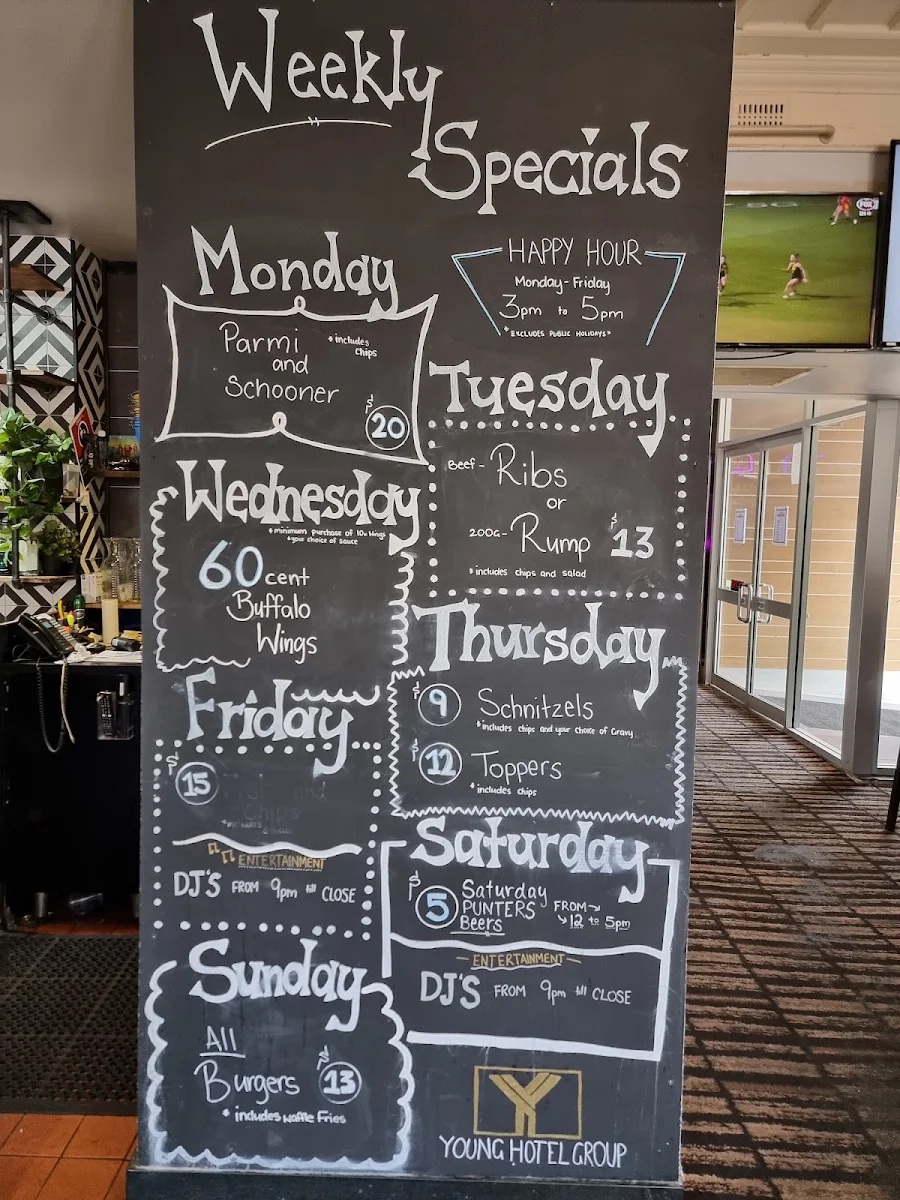 Weekly
Specials
Monday
Parmi
and
Schooner
*includes
Chips
$20
HAPPY HOUR
Monday-Friday
3pm to 5pm
*EXCLUDES PUBLIC HOLIDAYS*
Tuesday
Beef- Ribs
or
200G- Rump
$13
*includes chips and salad
Wednesday
*minimum purchase of 10x wings
*your choice of sauce
60 cent
Buffalo
Wings
Thursday
$9 Schnitzels
*includes chips and your choice of Gravy
$12 Toppers
*includes chips
Friday
$15
and
Chips
ENTERTAINMENT
DJ'S FROM 9pm till CLOSE
Saturday
$5 Saturday
PUNTERS
Beers
FROM
12 to 5pm
-ENTERTAINMENT-
DJ'S FROM 9pm till CLOSE
Sunday
All
Burgers $13
*includes waffle Fries
Y
YOUNG HOTEL GROUP
FOX